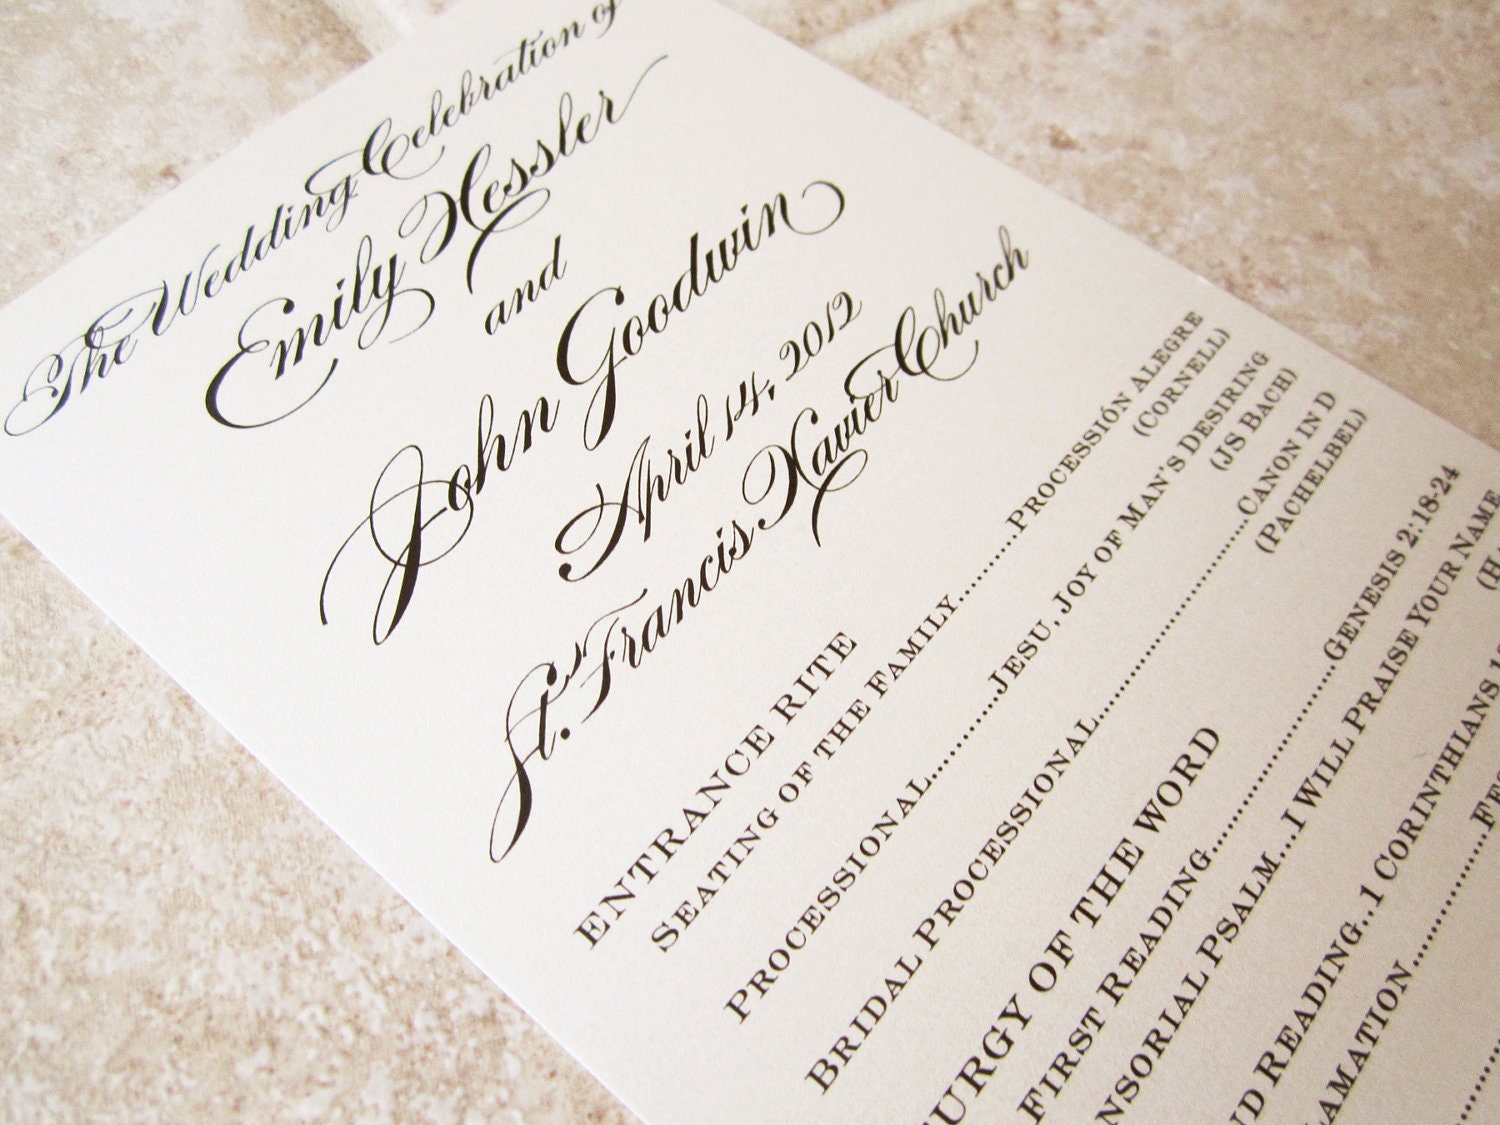 The Wedding Celebration of
Emily Hessler
and
John Goodwin
April 14, 2012
St. Francis Xavier Church
ENTRANCE RITE
SEATING OF THE FAMILY.........PROCESSIÓN ALEGRE
(CORNELL)
PROCESSIONAL..........JESU, JOY OF MAN'S DESIRING
(JS BACH)
BRIDAL PROCESSIONAL..............................CANON IN D
(PACHELBEL)
URGY OF THE WORD
FIRST READING........................GENESIS 2:18-24
NSORIAL PSALM...I WILL PRAISE YOUR NAME
ND READING..1 CORINTHIANS
AMATION